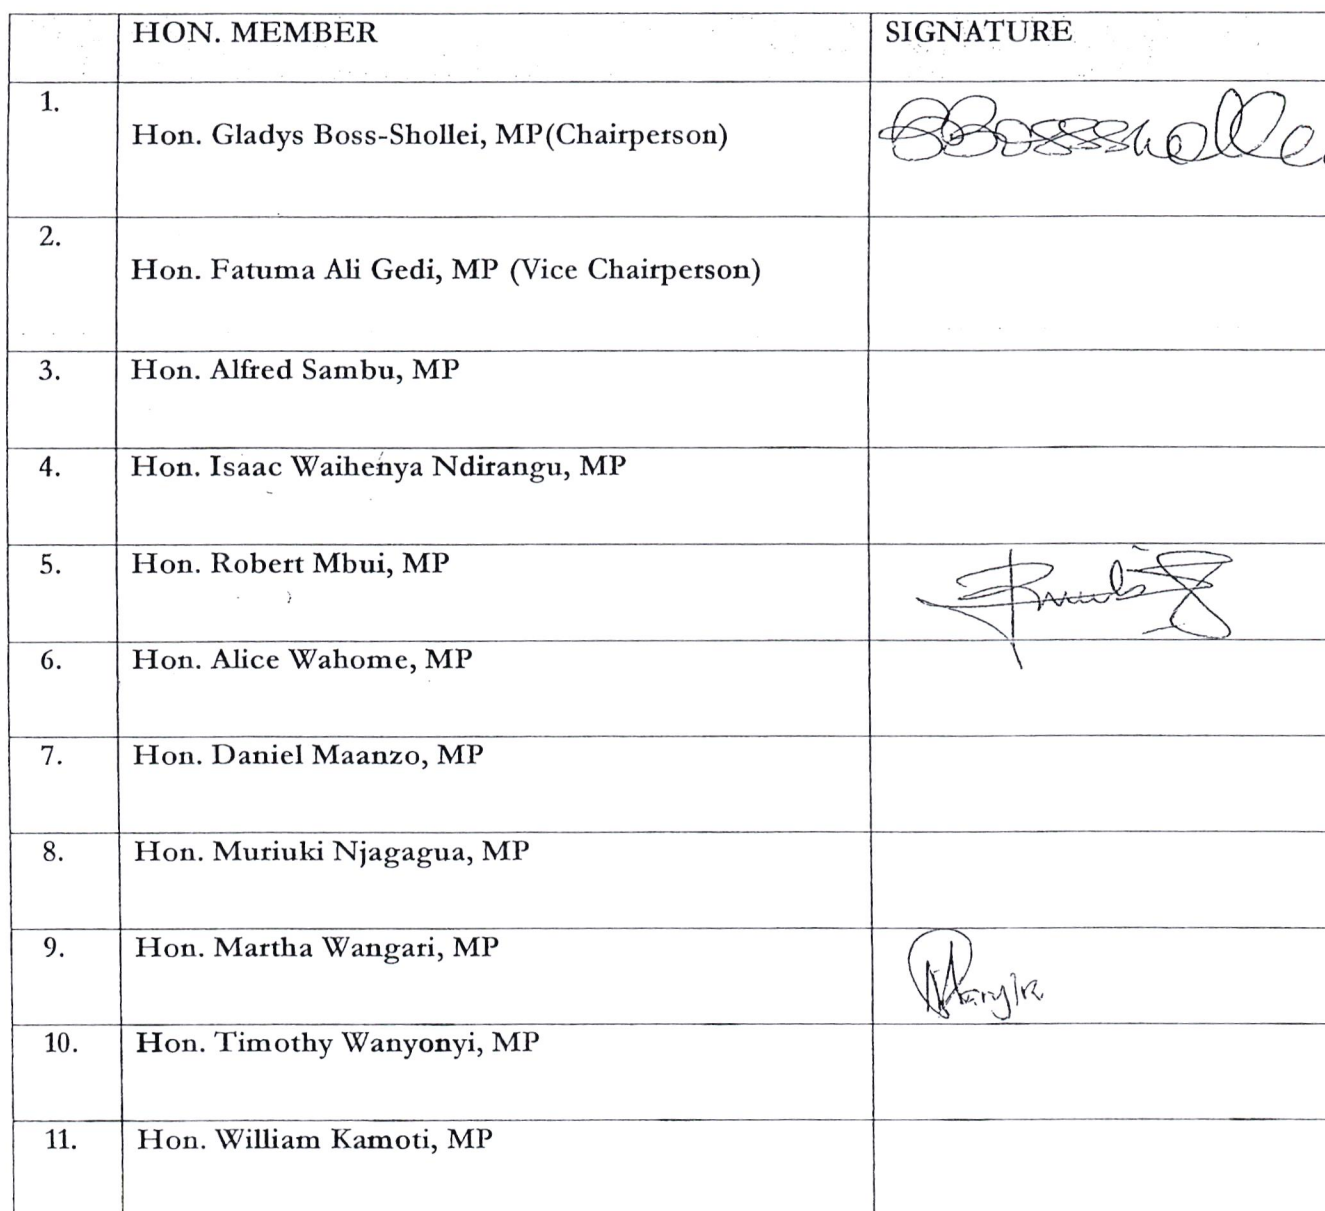 HON. MEMBER SIGNATURE
1. Hon. Gladys Boss-Shollei, MP(Chairperson)
2. Hon. Fatuma Ali Gedi, MP (Vice Chairperson)
3. Hon. Alfred Sambu, MP
4. Hon. Isaac Waihenya Ndirangu, MP
5. Hon. Robert Mbui, MP
6. Hon. Alice Wahome, MP
7. Hon. Daniel Maanzo, MP
8. Hon. Muriuki Njagagua, MP
9. Hon. Martha Wangari, MP
10. Hon. Timothy Wanyonyi, MP
11. Hon. William Kamoti, MP